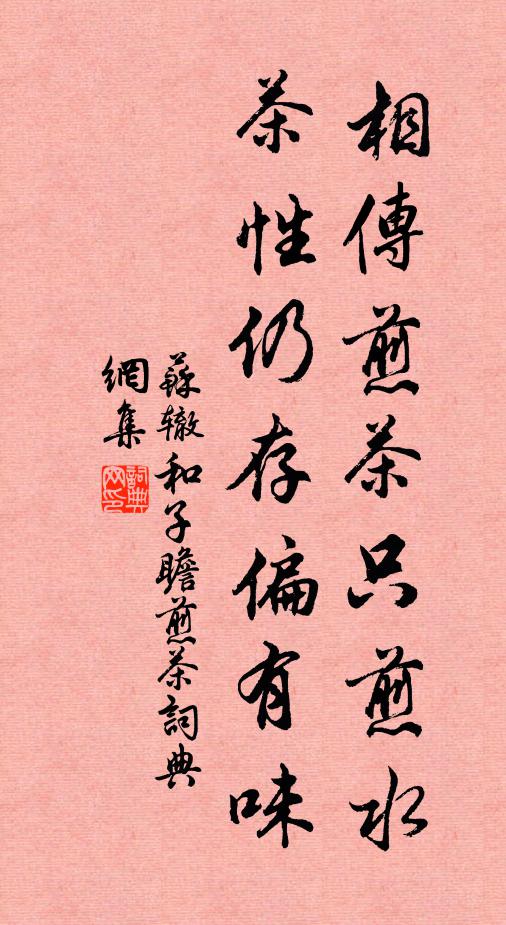 相傳煎茶只煎水
茶性仍存偏有味
蘇辙和子瞻煎茶詞典
網集
詞典
网印